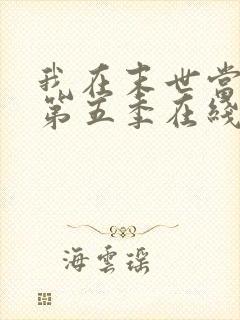 我在末世當
第五季在綫
海雲瑶